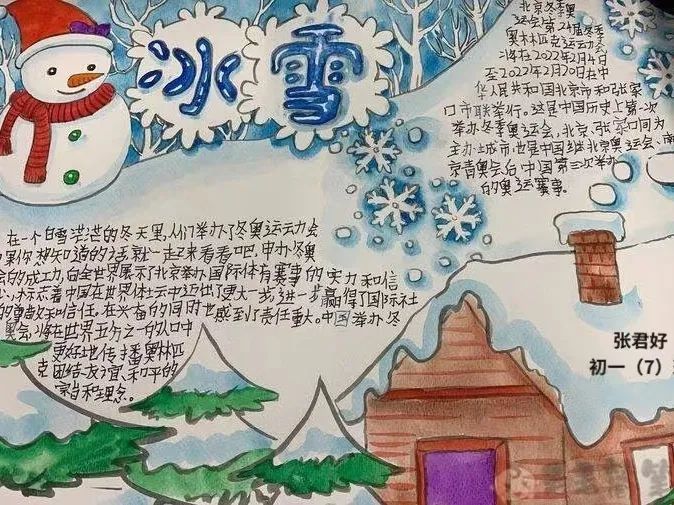 冰雪
北京冬季奥
运会第24届冬季
奥林匹克运动会
将在2022年2月4日
至2022年2月20日在中
华人民共和国北京市和张家
口市联举行。这是中国历史上第一次
举办冬季奥运会,北京、张家口同为
主办城市,也是中国继北京奥运会、南
京青奥会后中国第三次举办
的奥运赛事。
在一个白雪茫茫的冬天里,人们举办了冬奥运动会
果你想知道的话就一起来看看吧,申办冬奥
会的成功,向全世界展示了北京举办国际体育赛事的实力和信
心,标志着中国在世界体坛中迈出了更大一步,进一步赢得了国际社
的尊敬和信任。在兴奋的同时也感到了责任重大。中国举办冬
奥会,将在世界五分之一的人口中
更好地传播奥林匹
克团结、友谊、和平的
宗旨和理念。
张君好
初一(7)